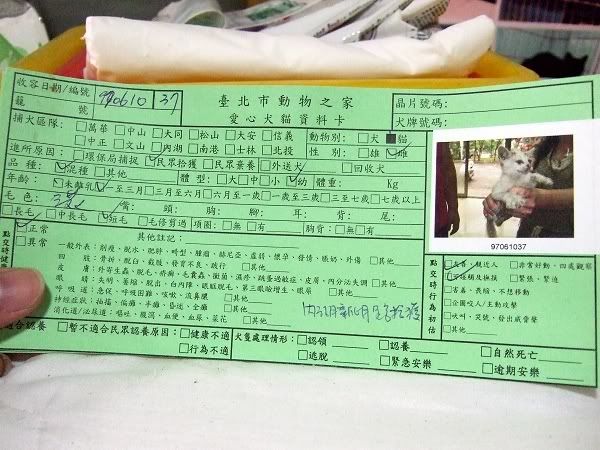 收容日期/編號 970610 37
臺北市動物之家
晶片號碼:
籠 號
愛心犬貓資料卡
犬牌號碼:
捕犬區隊: □萬華 □中山 □大同 □松山 □大安 □信義
動物別: □犬 ■貓
□中正 □文山 □內湖 □南港 □士林 □北投
性 別: □雄 ☑雌
進所原因: □環保局捕捉 ☑民眾拾獲 □民眾棄養 □外送犬 □回收犬
品 種: ☑混種 □其他
體 型: □大 □中 □小 ☑幼 體重: Kg
年齡: ☑未離乳 □一至三月 □三月至六月 □六月至一歲 □一歲至三歲 □三至七歲 □七歲以上
毛 色: 嘴: 頭: 胸: 腳: 耳: 背: 尾:
□長毛 □中長毛 ☑短毛 □毛修剪過 項圈: □無 □有 胸背: □無 □有
97061037
點交時健康
☑正常
□異常
其他註記:
一般外表: 削瘦、脫水、肥胖、畸型、腫瘤、赫尼亞、虛弱、懷孕、發情、脹奶、外傷 □其他
四 肢: 骨折、脫臼、截肢、發育不良、跛行 □其他
皮 膚: 外寄生蟲、脫毛、疥癬、毛囊蟲、黴菌、濕疹、跳蚤過敏症、皮屑、內分泌失調 □其他
眼 睛: 失明、萎縮、脫出、白內障、眼瞼脫毛、第三眼瞼增生、眼屎 □其他
呼 吸 道: 急促、呼吸困難、咳嗽、流鼻膿 □其他
神經症狀: 抽搐、偏癱、半癱、昏迷、全癱 □其他
消化道/泌尿道: 嘔吐、腹瀉、血便、血尿、菜花 □其他
點交時行為初估
□友善、親近人 □非常好動、四處觀察
□緊張、緊迫
□害羞、畏縮、不想移動
□企圖咬人/主動攻擊
□吠叫、哭號、發出威脅聲
□其他
適合認養 □暫不適合民眾認養原因: □健康不適
□行為不適
犬隻處理情形: □認領 □認養 □自然死亡
□逃脫 □緊急安樂 □逾期安樂